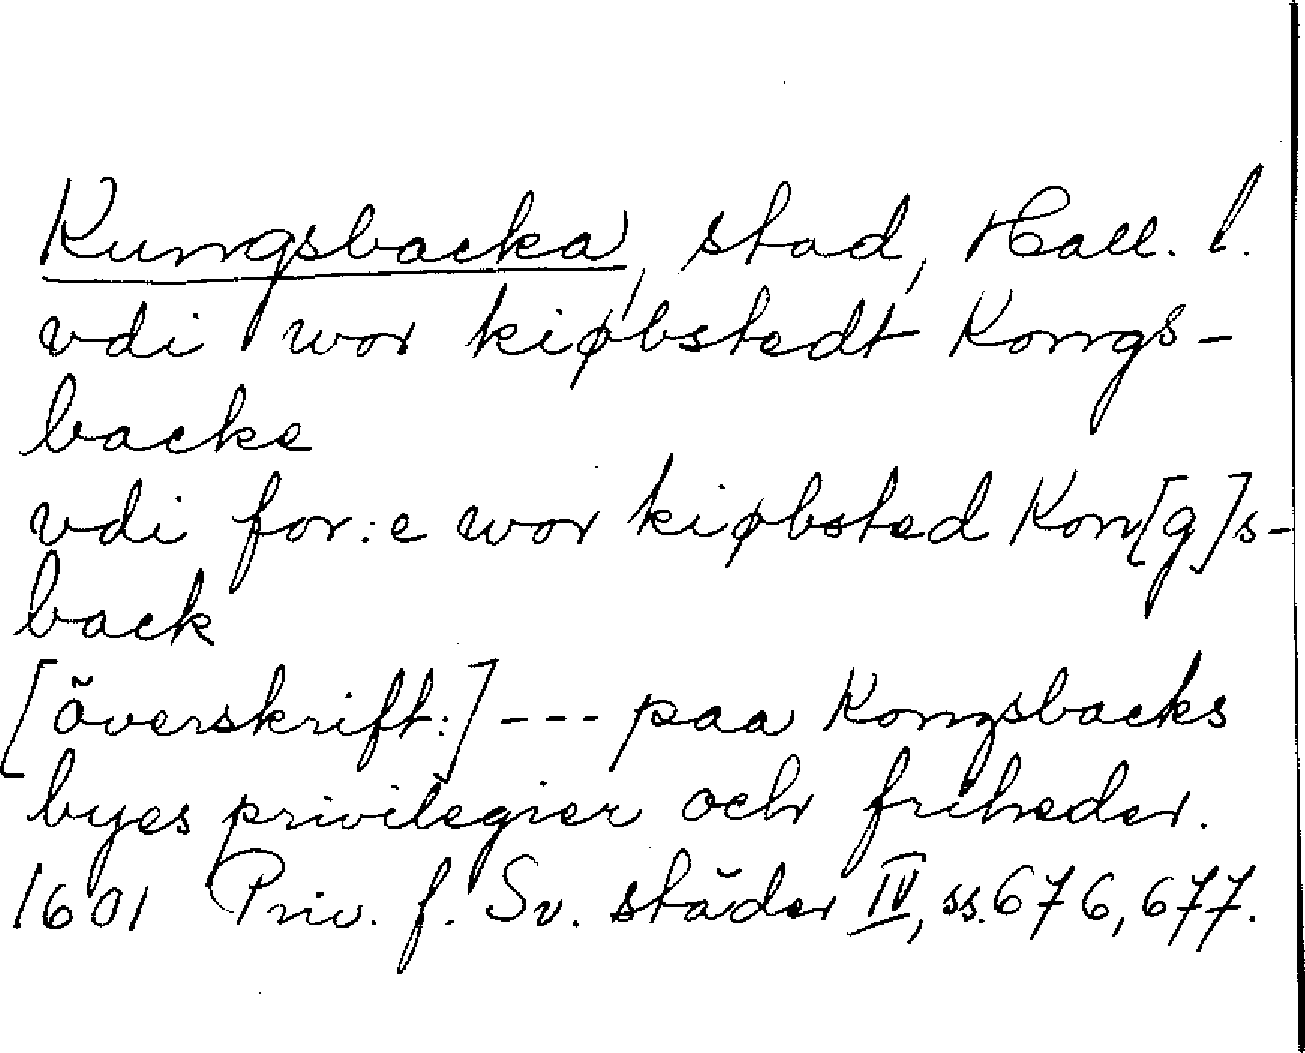 Kungsbacka, stad, Hall. l.
vdi wor kiøbstedt Kongs-
backe
vdi for:e wor kiøbsted Kon[g]s-
back
[överskrift:] --- paa Kongsbacks
byes privilegier och friheder.
1601 Priv. f. Sv. städer IV, ss. 676, 677.